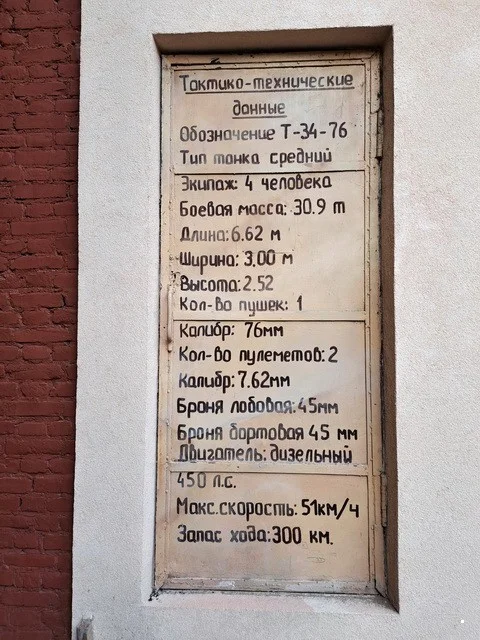 Тактико-технические
данные
Обозначение Т-34-76
Тип танка средний
Экипаж: 4 человека
Боевая масса: 30.9 т
Длина: 6.62 м
Ширина: 3,00 м
Высота: 2.52
Кол-во пушек: 1
Калибр: 76мм
Кол-во пулеметов: 2
Калибр: 7.62мм
Броня лобовая: 45мм
Броня бортовая 45 мм
Двигатель: дизельный
450 л.с.
Макс.скорость: 51км/ч
Запас хода: 300 км.